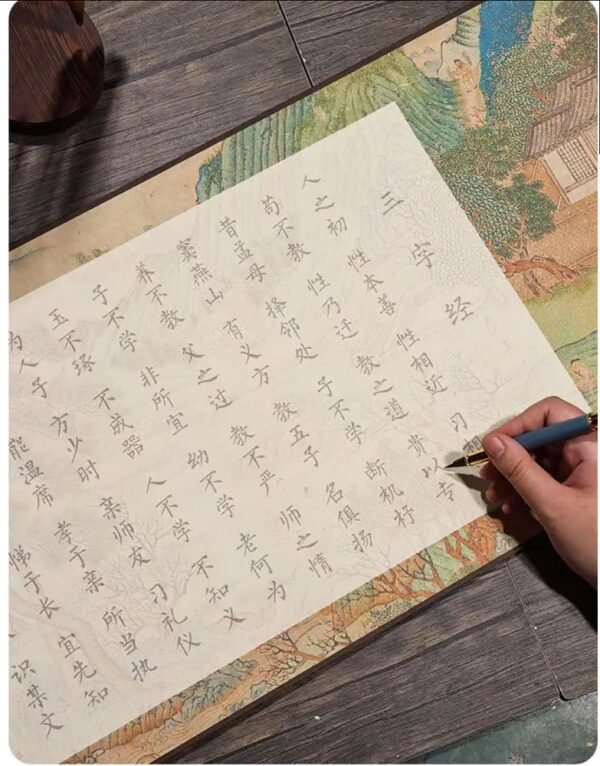 三字经
人之初 性本善 性相近 习相
苟不教 性乃迁 教之道 贵以专
昔孟母 择邻处 子不学 断机杼
窦燕山 有义方 教五子 名俱扬
养不教 父之过 教不严 师之惰
子不学 非所宜 幼不学 老何为
玉不琢 不成器 人不学 不知义
为人子 方少时 亲师友 习礼仪
能温席 孝于亲 所当执
悌于长 宜先知
识某文